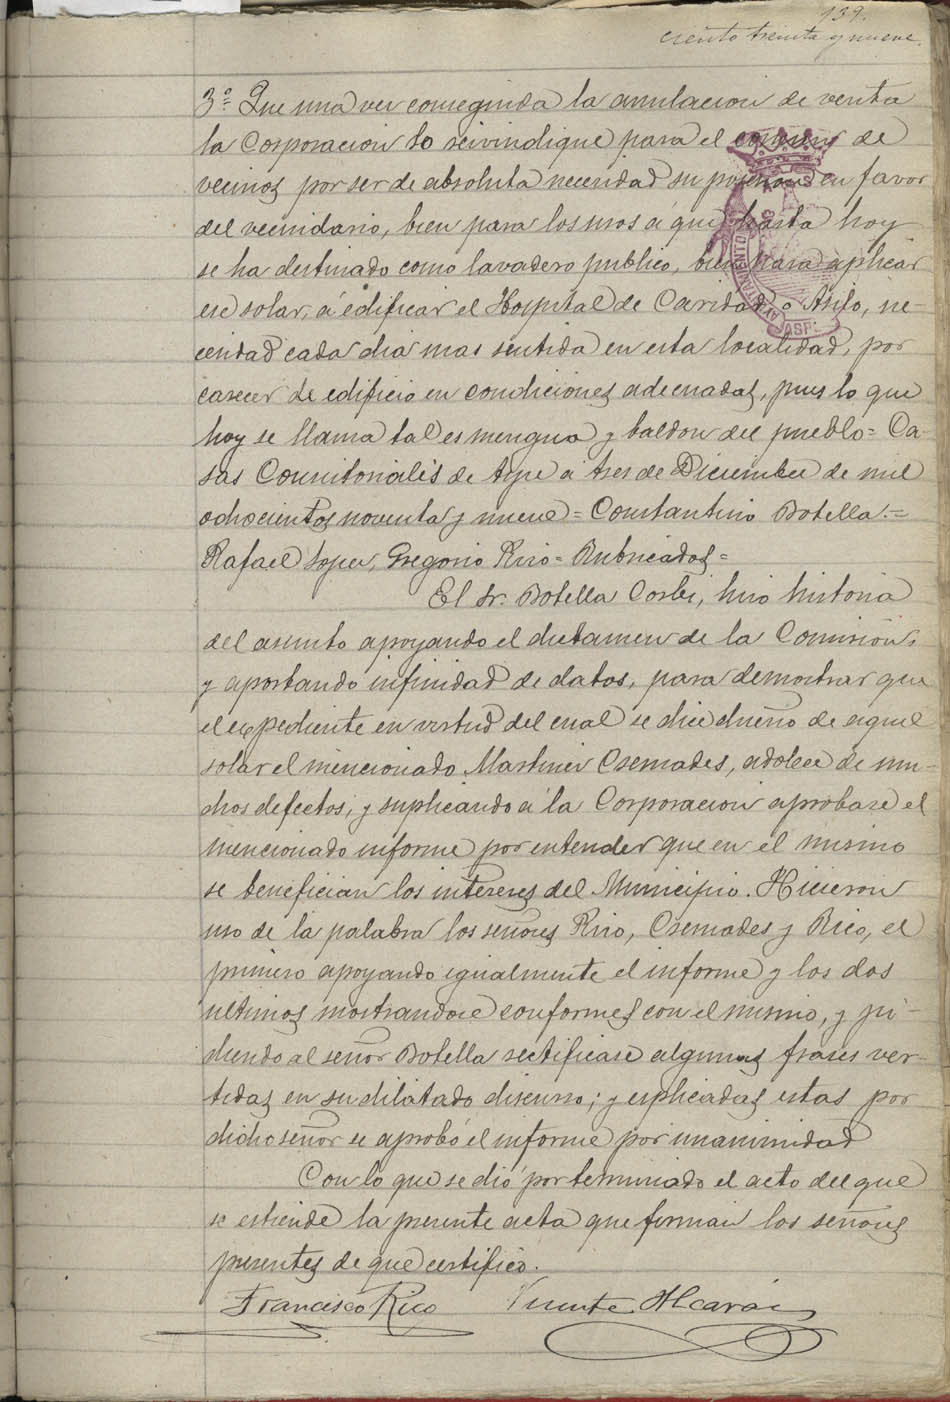 139.
ciento treinta y nueve.
3º= Que una vez conseguida la anulacion de venta
la Corporacion lo reivindique para el comun de
vecinos por ser de absoluta necesidad su posesion en favor
del vecindario, bien para los usos á que hasta hoy
se ha destinado como lavadero publico, bien para aplicar
ese solar, á edificar el Hospital de Caridad o Asilo, ne-
cesidad cada dia mas sentida en esta localidad, por
carecer de edificio en condiciones adecuadas, pues lo que
hoy se llama tal es mengua y baldon del pueblo= Ca-
sas Consitoriales de Aspe á tres de Diciembre de mil
ochocientos noventa y nueve= Constantino Botella.=
Rafael Lopez, Gregorio Rizo= Rubricados=
El Sr. Botella Corbi, hizo historia
del asunto apoyando el dictamen de la Comision,
y aportando infinidad de datos, para demostrar que
el expediente en virtud del cual se dice dueño de aquel
solar el mencionado Martinez Cremades, adolece de mu-
chos defectos; y suplicando á la Corporacion aprobase el
mencionado informe por entender que en el mismo
se benefician los intereses del Municipio. Hicieron
uso de la palabra los señores Rizo, Cremades y Rico, el
primero apoyando igualmente el informe y los dos
ultimos mostrandose conformes con el mismo, y pi-
diendo al señor Botella rectificase algunas frases ver-
tidas en su dilatado discurso; y esplicadas estas por
dicho señor se aprobó el informe por unanimidad
Con lo que se dió por terminado el acto del que
se estiende la presente acta que firman los señores
presentes de que certifico.
Francisco Rico Vicente Alcaráz
AYUNTAMIENTO
ASPE